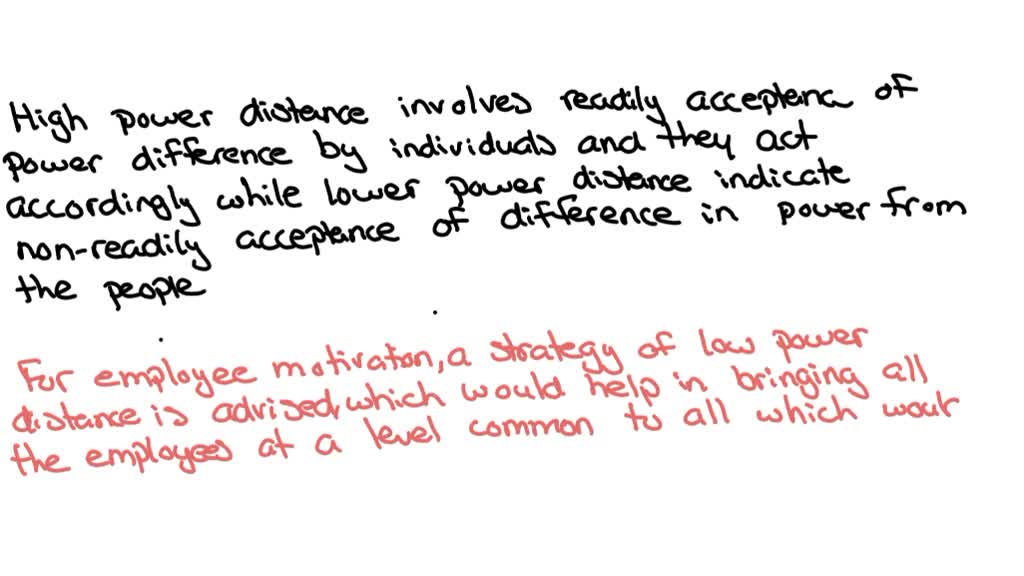 High power distance involves readily acceptanc of
power difference by individuals and they act
accordingly while lower power distance indicate
non-readily acceptance of difference in power from
the people
For employee motivaton, a strategy of low power
distance is advised, which would help in bringing all
the employees at a level common to all which